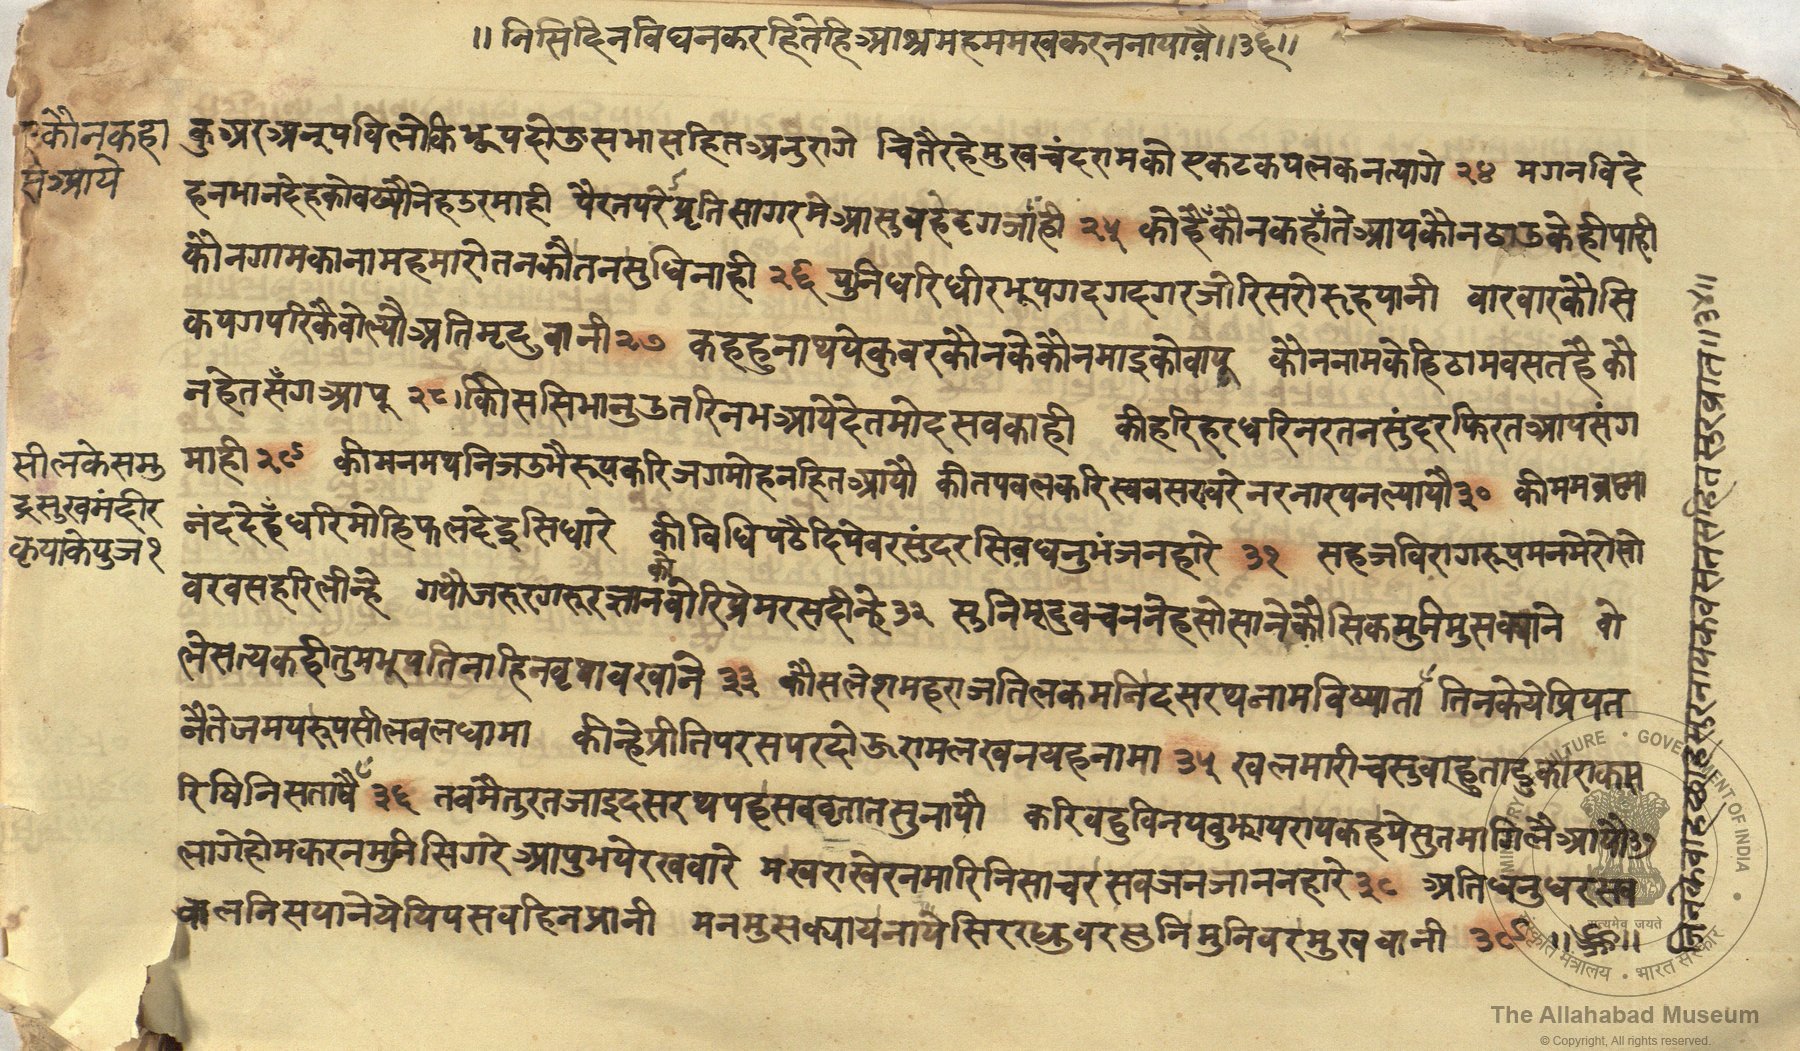 ॥ निसिदिनविघनकरहितेहिआश्रमहममखकरननापावै॥३६॥
कौनकहा
सेआये
कुअरअनूपविलोकिभूपदोऊसभासहितअनुरागे चितैरहेमुखचंदरामकौएकटकपलकनत्यागे २४ मगनविदे
हनभानदेहकोवढ्यौनेहउरमाही पैरतपरेप्रतिसागरमेआसुवहेदृगजांही २५ कोहैँकौनकहाँतेआयकौनठाउकेहीपाही
कौनगामकानामहमारोतनकौतनसुधिनाही २६ पुनिधरिधीरभूपगदगदगरजोरिसरोरुहपानी वारवारकौसि
कपगपरिकैवोल्यौअतिमृदुवानी २७ कहहुनाथयेकुवरकौनकेकौनमाइकोवापू कौननामकेहिठामवसतहैकौ
नहेतसँगआपू २८ कीससिभानुउतरिनभआयेदेतमोदसवकाही कीहरिहरधरिनरतनसुंदरफिरतआपसंग
माही २९ कीमनमथनिजउभैरूपकरिजगमोहनहितआयौ कीतपवलकरिस्ववसखरेनरनारयनल्यायौ ३० कीममब्रह्मा
सीलकेसमु
द्रसुखमंदीर
कृपाकेपुज१
नंददेहँधरिमोहिफलदेइसिधारे कीविधिपठैदियेवरसुंदरसिवधनुभंजनहारे ३१ सहजविरागरूपमनमेरोसो
को
वरवसहरिलीन्है गयौजरूरगरूरज्ञानवोरिप्रेमरसदीन्हे ३२ सुनिमृदुवचननेहसोसानेकौसिकमुनिमुसक्याने वो
लेसत्यकहीतुमभूपतिनाहिनवृथावखाने ३३ कौसलेशमहराजतिलकमनिदसरथनामविख्याता तिनकेयेप्रियत
नैतेजमयरूपसीलवलधामा कीन्हेप्रीतिपरसपरदोऊरामलखनयहनामा ३५ खलमारीचसुवाहुताडुकौराकस
रिषिनिसतावै ३६ तवमैतुरतजाइदसरथपहसववृतातसुनायौ करिवहुविनयवुझायरायकहयेसुतमागिलैआयौ३७
लागेहोमकरनमुनिसिगरेआपुभयेरखवारे मखराखेरनमारिनिसाचरसवजनजाननहारे ३८ अतिधनुधरसव
कलनिसयानेयेयियसवहिनप्रानी मनमुसक्यायनायेसिररघुवरसुनिमुनिवरमुखवानी ३९
The Allahabad Museum
© Copyright, All rights reserved.
MINISTRY OF CULTURE • GOVERNMENT OF INDIA
सत्यमेव जयते
संस्कृति मंत्रालय • भारत सरकार